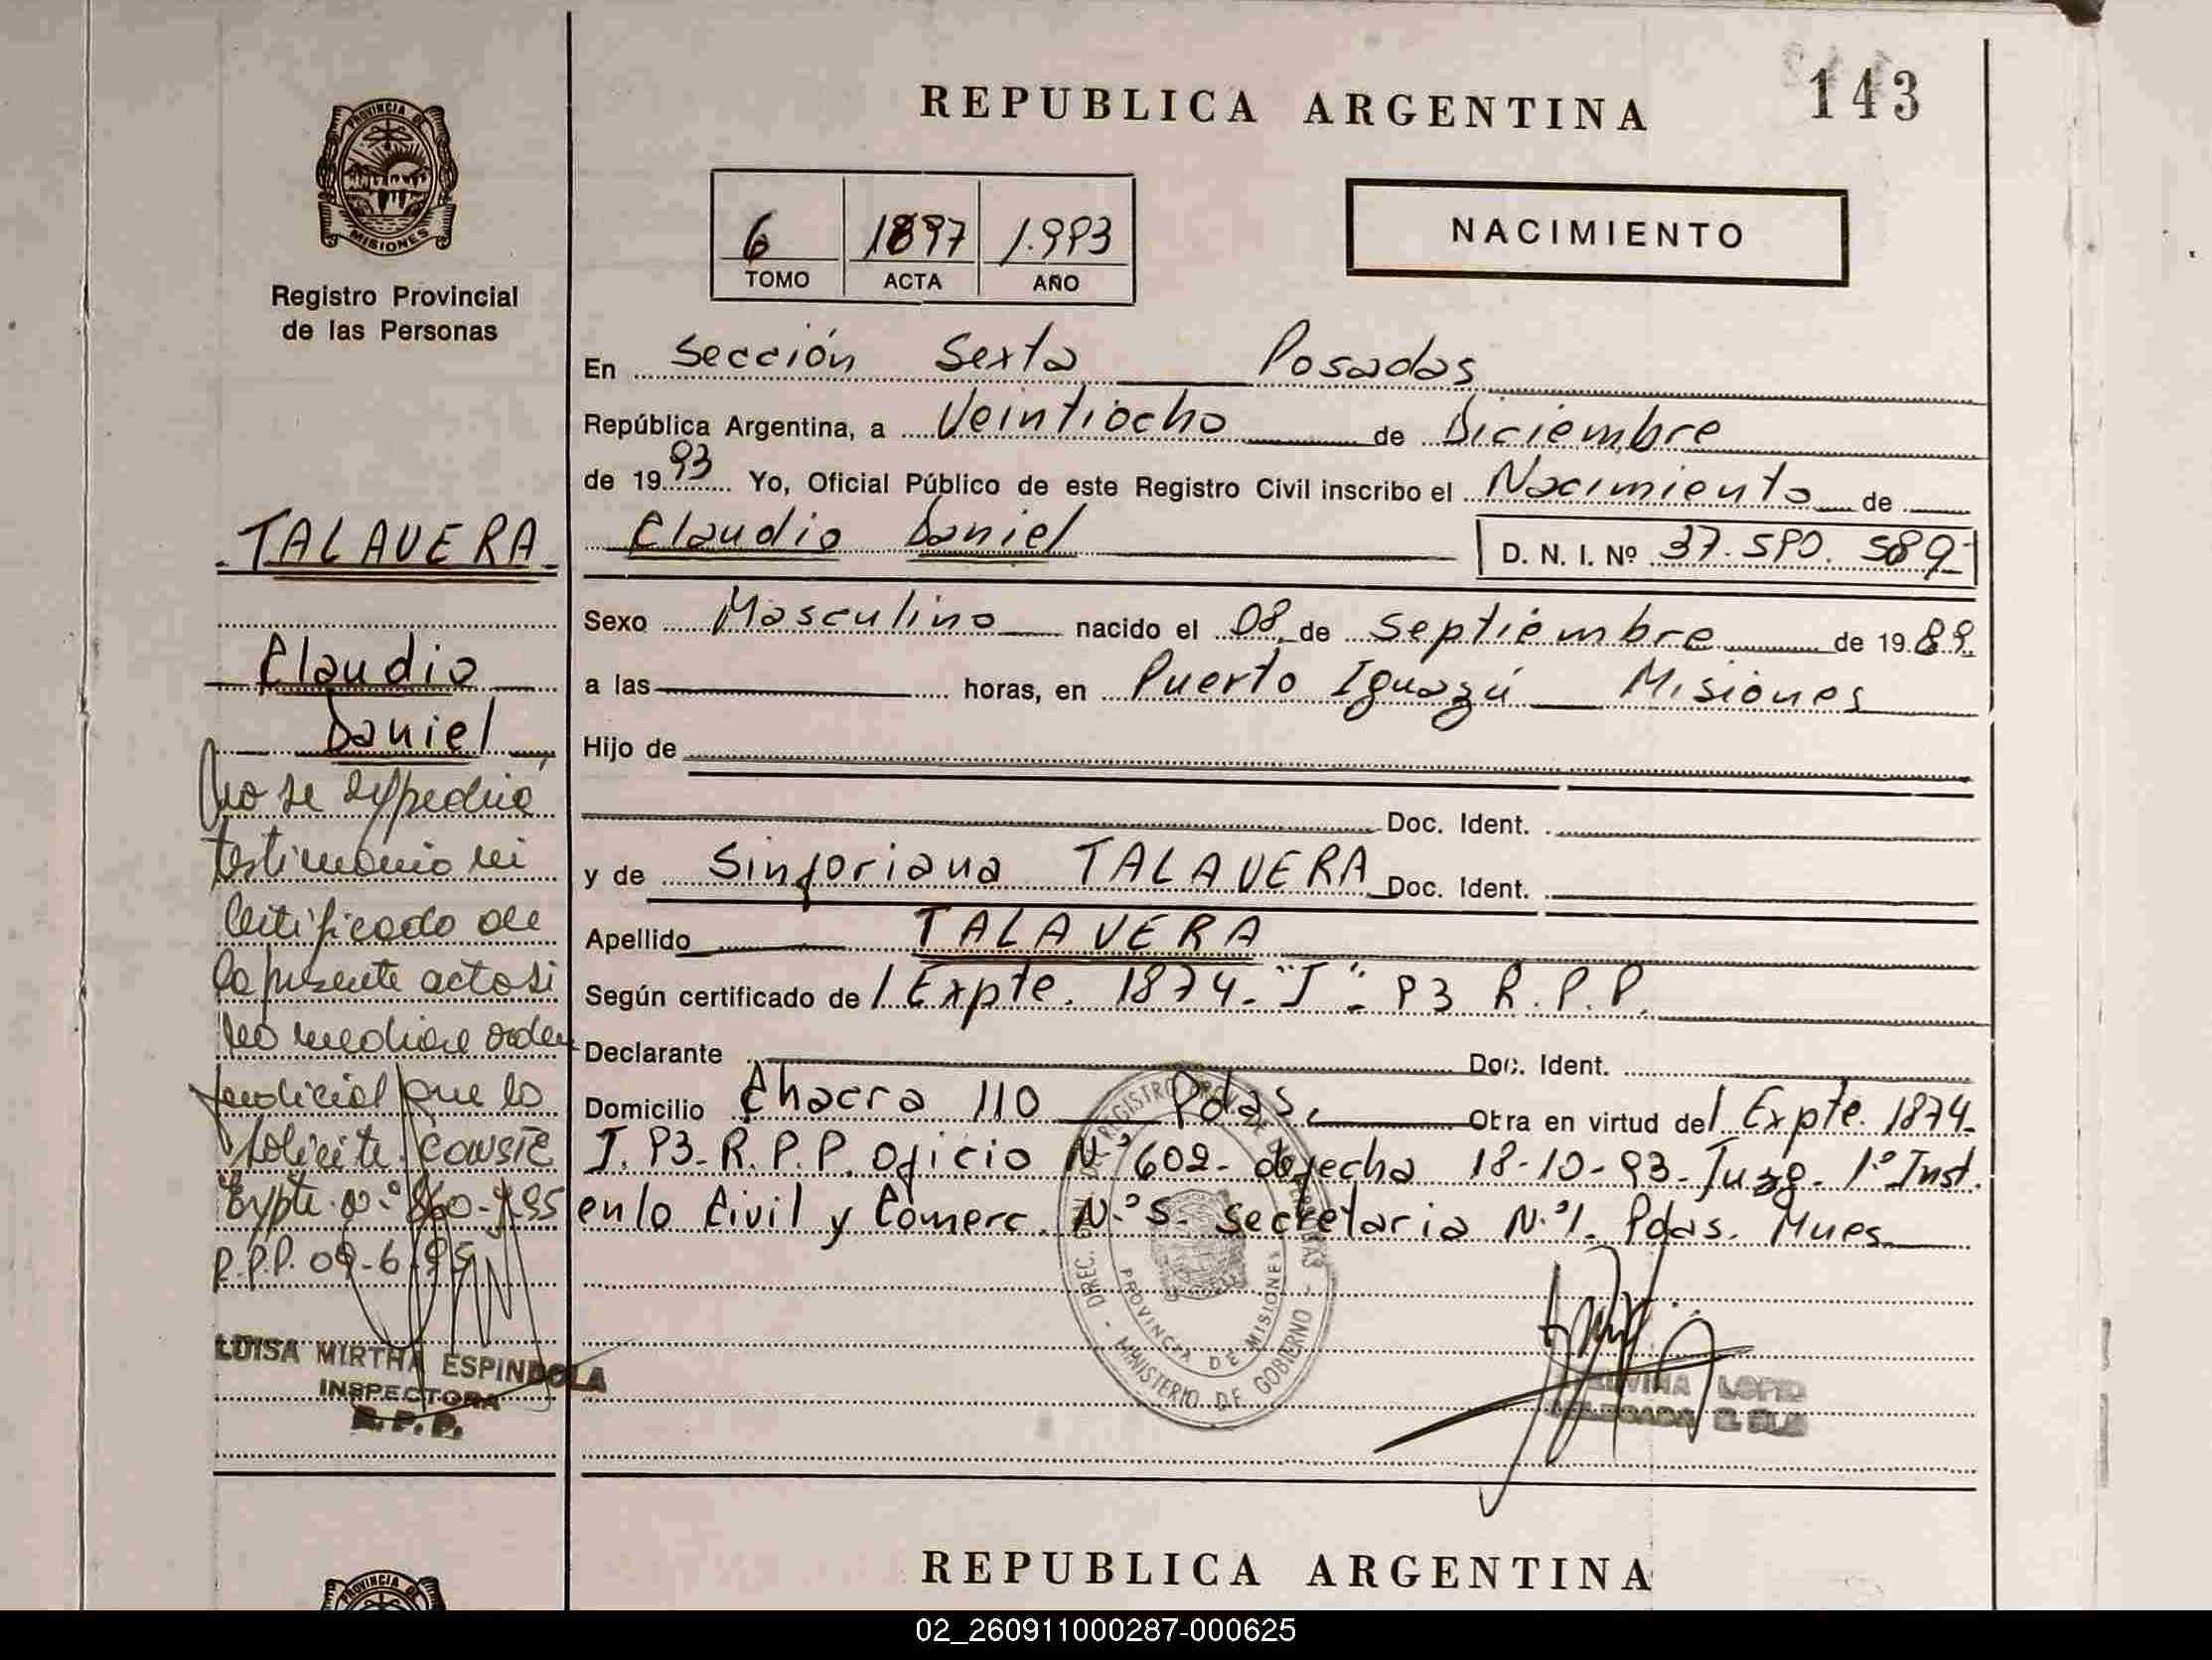 143
REPUBLICA ARGENTINA
PROVINCIA DE
MISIONES
Registro Provincial
de las Personas
6 1897 1.993
TOMO ACTA AÑO
NACIMIENTO
En Sección Sexta Posadas
República Argentina, a Veintiocho de Diciembre
de 1993 Yo, Oficial Público de este Registro Civil inscribo el Nacimiento de
Claudio Daniel D. N. I. Nº 37.590.589
Sexo Masculino nacido el 08 de Septiembre de 1989
a las horas, en Puerto Iguazú Misiones
Hijo de
Doc. Ident.
y de Sinforiana TALAVERA Doc. Ident.
Apellido TALAVERA
Según certificado de Expte. 1874-"J"-93 R.P.P.
Declarante Doc. Ident.
Domicilio Chacra 110 Pdas. Obra en virtud de Expte. 1874-
J. 93-R.P.P. Oficio N.º 602- de fecha 18-10-93-Juzg. 1º Inst.
en lo Civil y Comerc. N.º 5- Secretaria N.º 1. Pdas. Mnes
TALAVERA
Claudio
Daniel
No se expedira
testimonio ni
certificado de
la presente acta si
no mediare orden
judicial que lo
solicite. Conste
Expte. Nº
R.P.P.
LUISA MIRTHA ESPINDOLA
INSPECTORA
R.P.P.
PROVINCIA DE MISIONES
MINISTERIO DE GOBIERNO
REPUBLICA ARGENTINA
PROVINCIA D
02_260911000287-000625